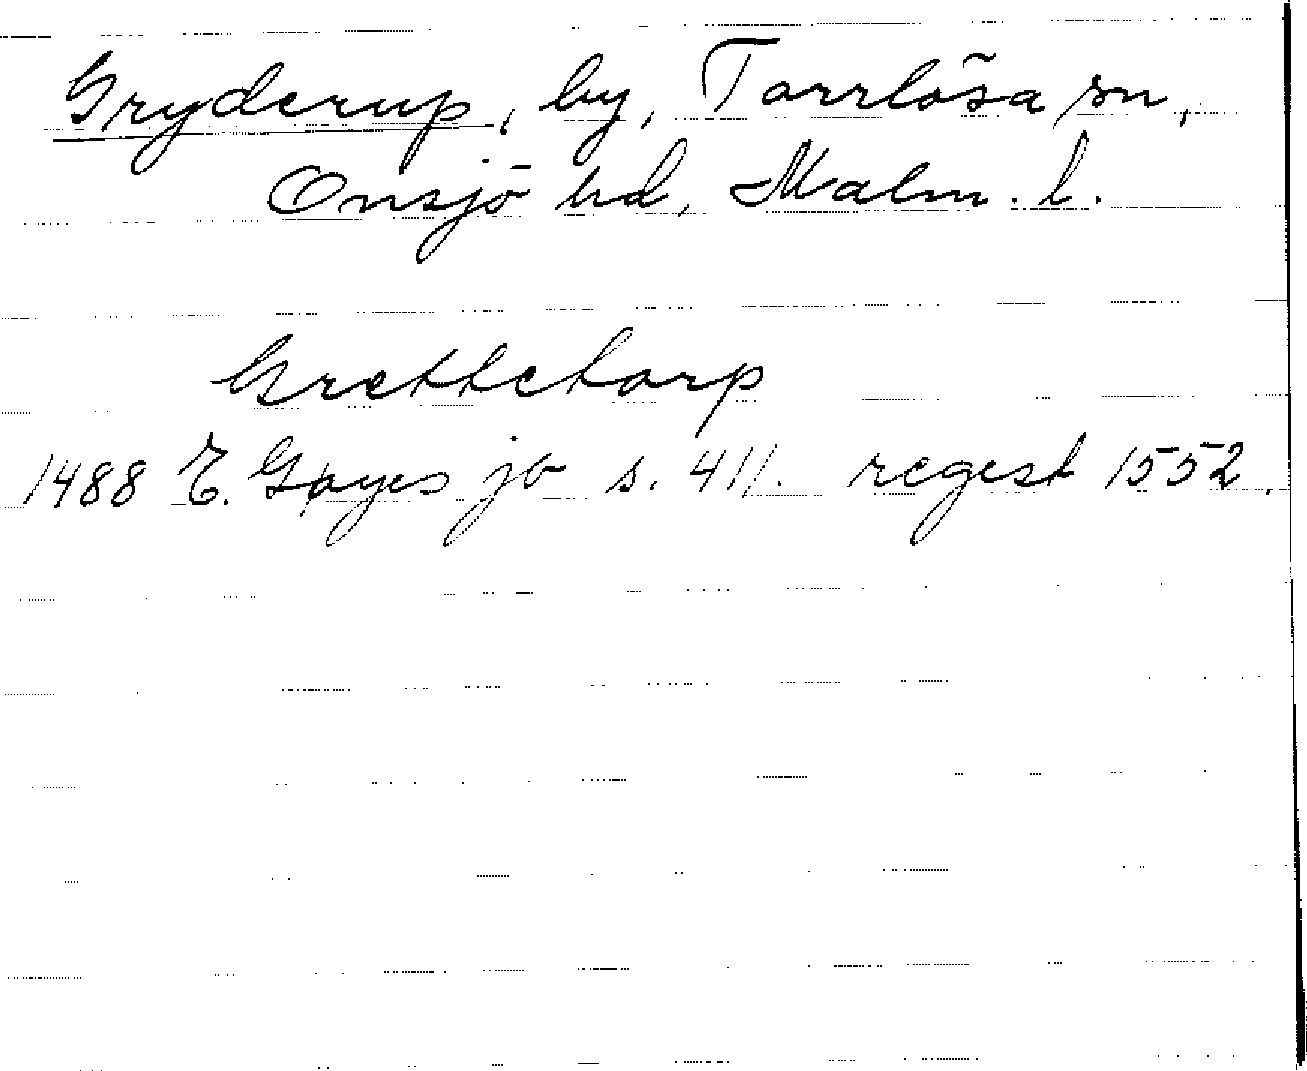 Gryderup, by, Torrlösa sn,
Onsjö hd, Malm. l.
Grettetorp
1488 E. Gøyes jb s. 411. regest 1552.